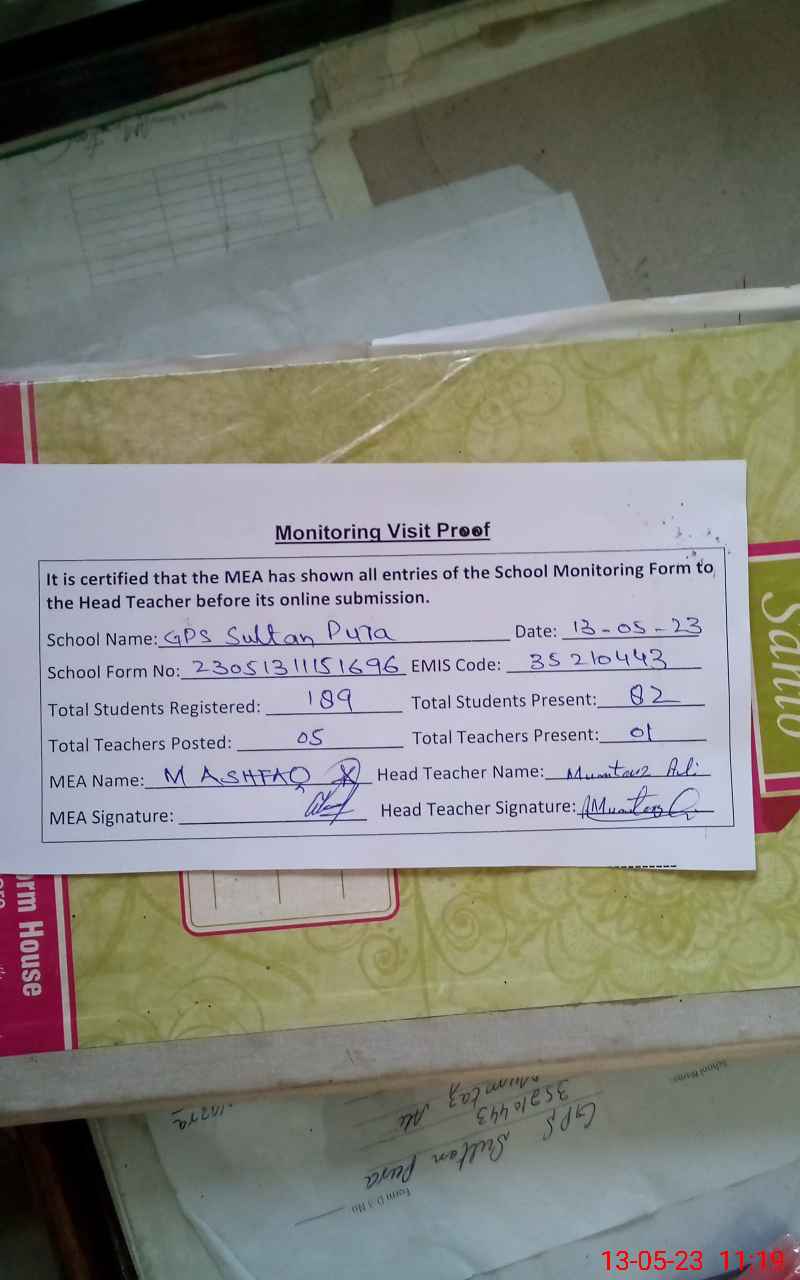 Monitoring Visit Proof
It is certified that the MEA has shown all entries of the School Monitoring Form to
the Head Teacher before its online submission.
School Name: GPS Sultan Pura Date: 13-05-23
School Form No: 23051311151696 EMIS Code: 35210443
Total Students Registered: 189 Total Students Present: 82
Total Teachers Posted: 05 Total Teachers Present: 01
MEA Name: M ASHFAQ Head Teacher Name: Mumtaz Ali
MEA Signature: Head Teacher Signature: Mumtaz
Santo
orm House
School Name
GPS Sultan Pura
35210443
Mumtaz Ali
Form D.3 No
13-05-23 11:19